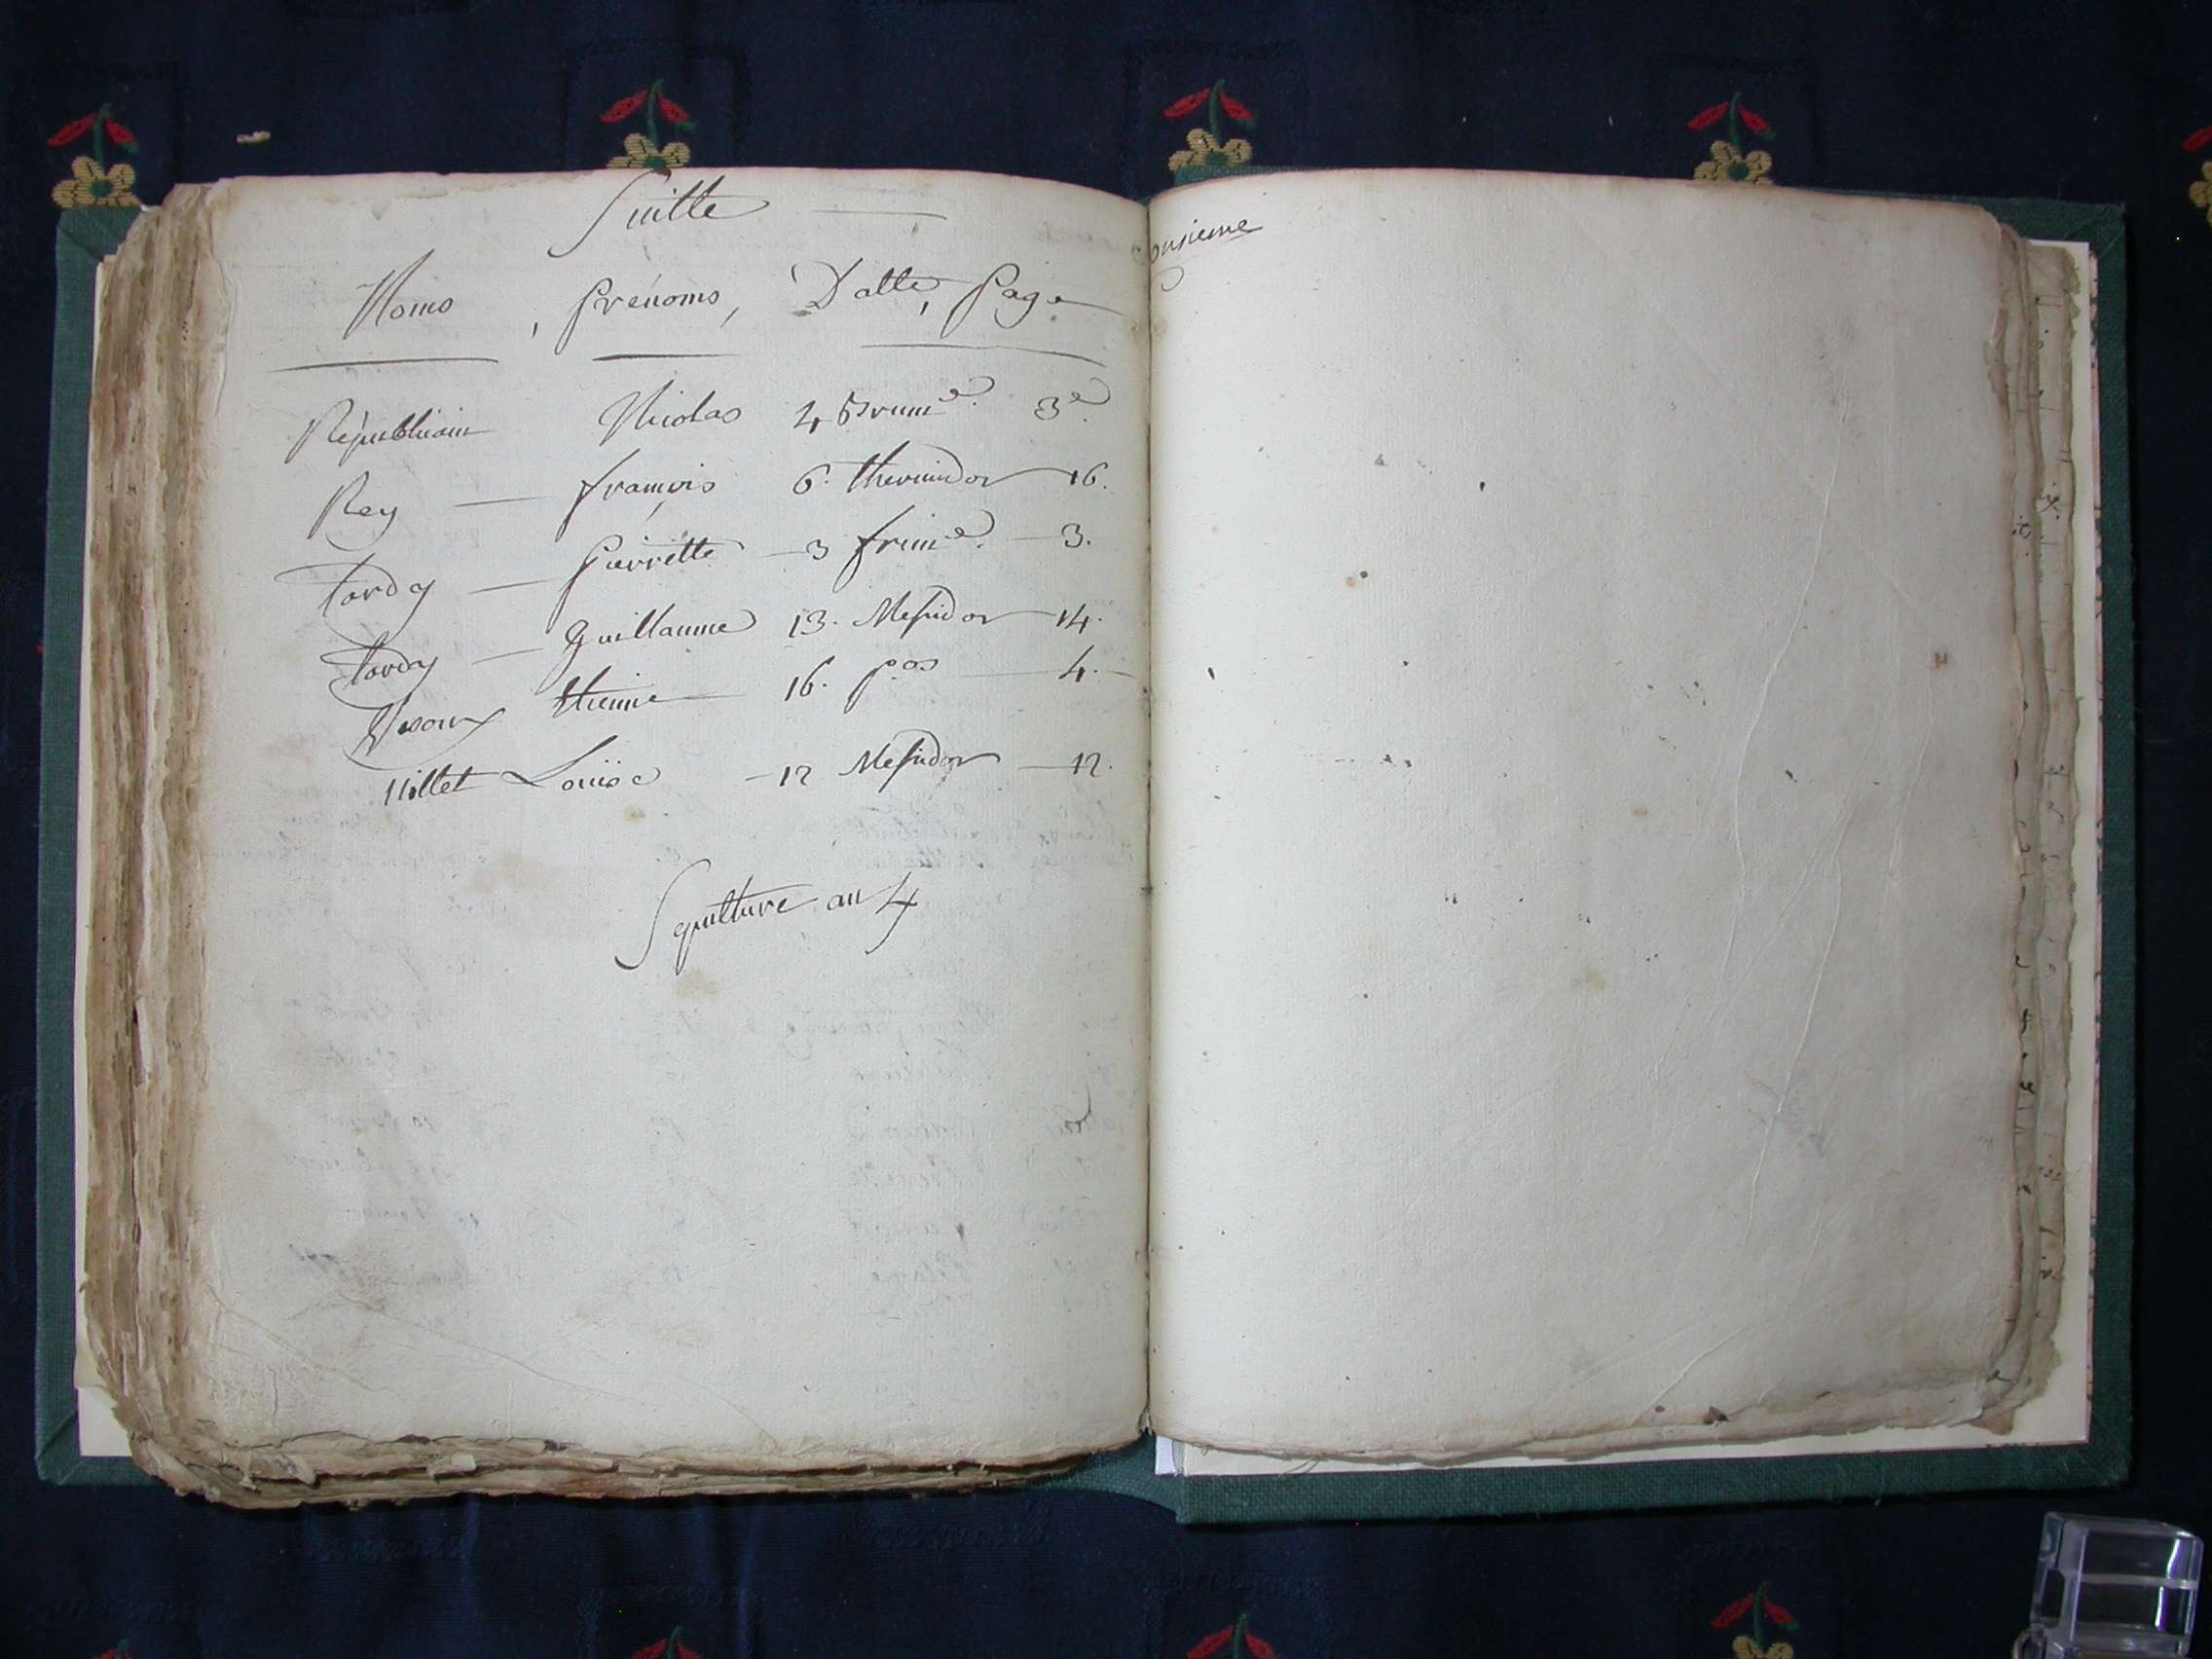 Suitte
Noms, Prénoms, Datte, Page
Républicain Nicolas 4 Brum.e 3e
Rey — françois 6. thermidor 16.
tardy — Pierrette — 3 frim.e — 3.
tardy — Guillaume 13. Messidor — 14.
Etienne — 16. — 4. —
Louise — 12 Messidor — 12.
Sepulture an 4